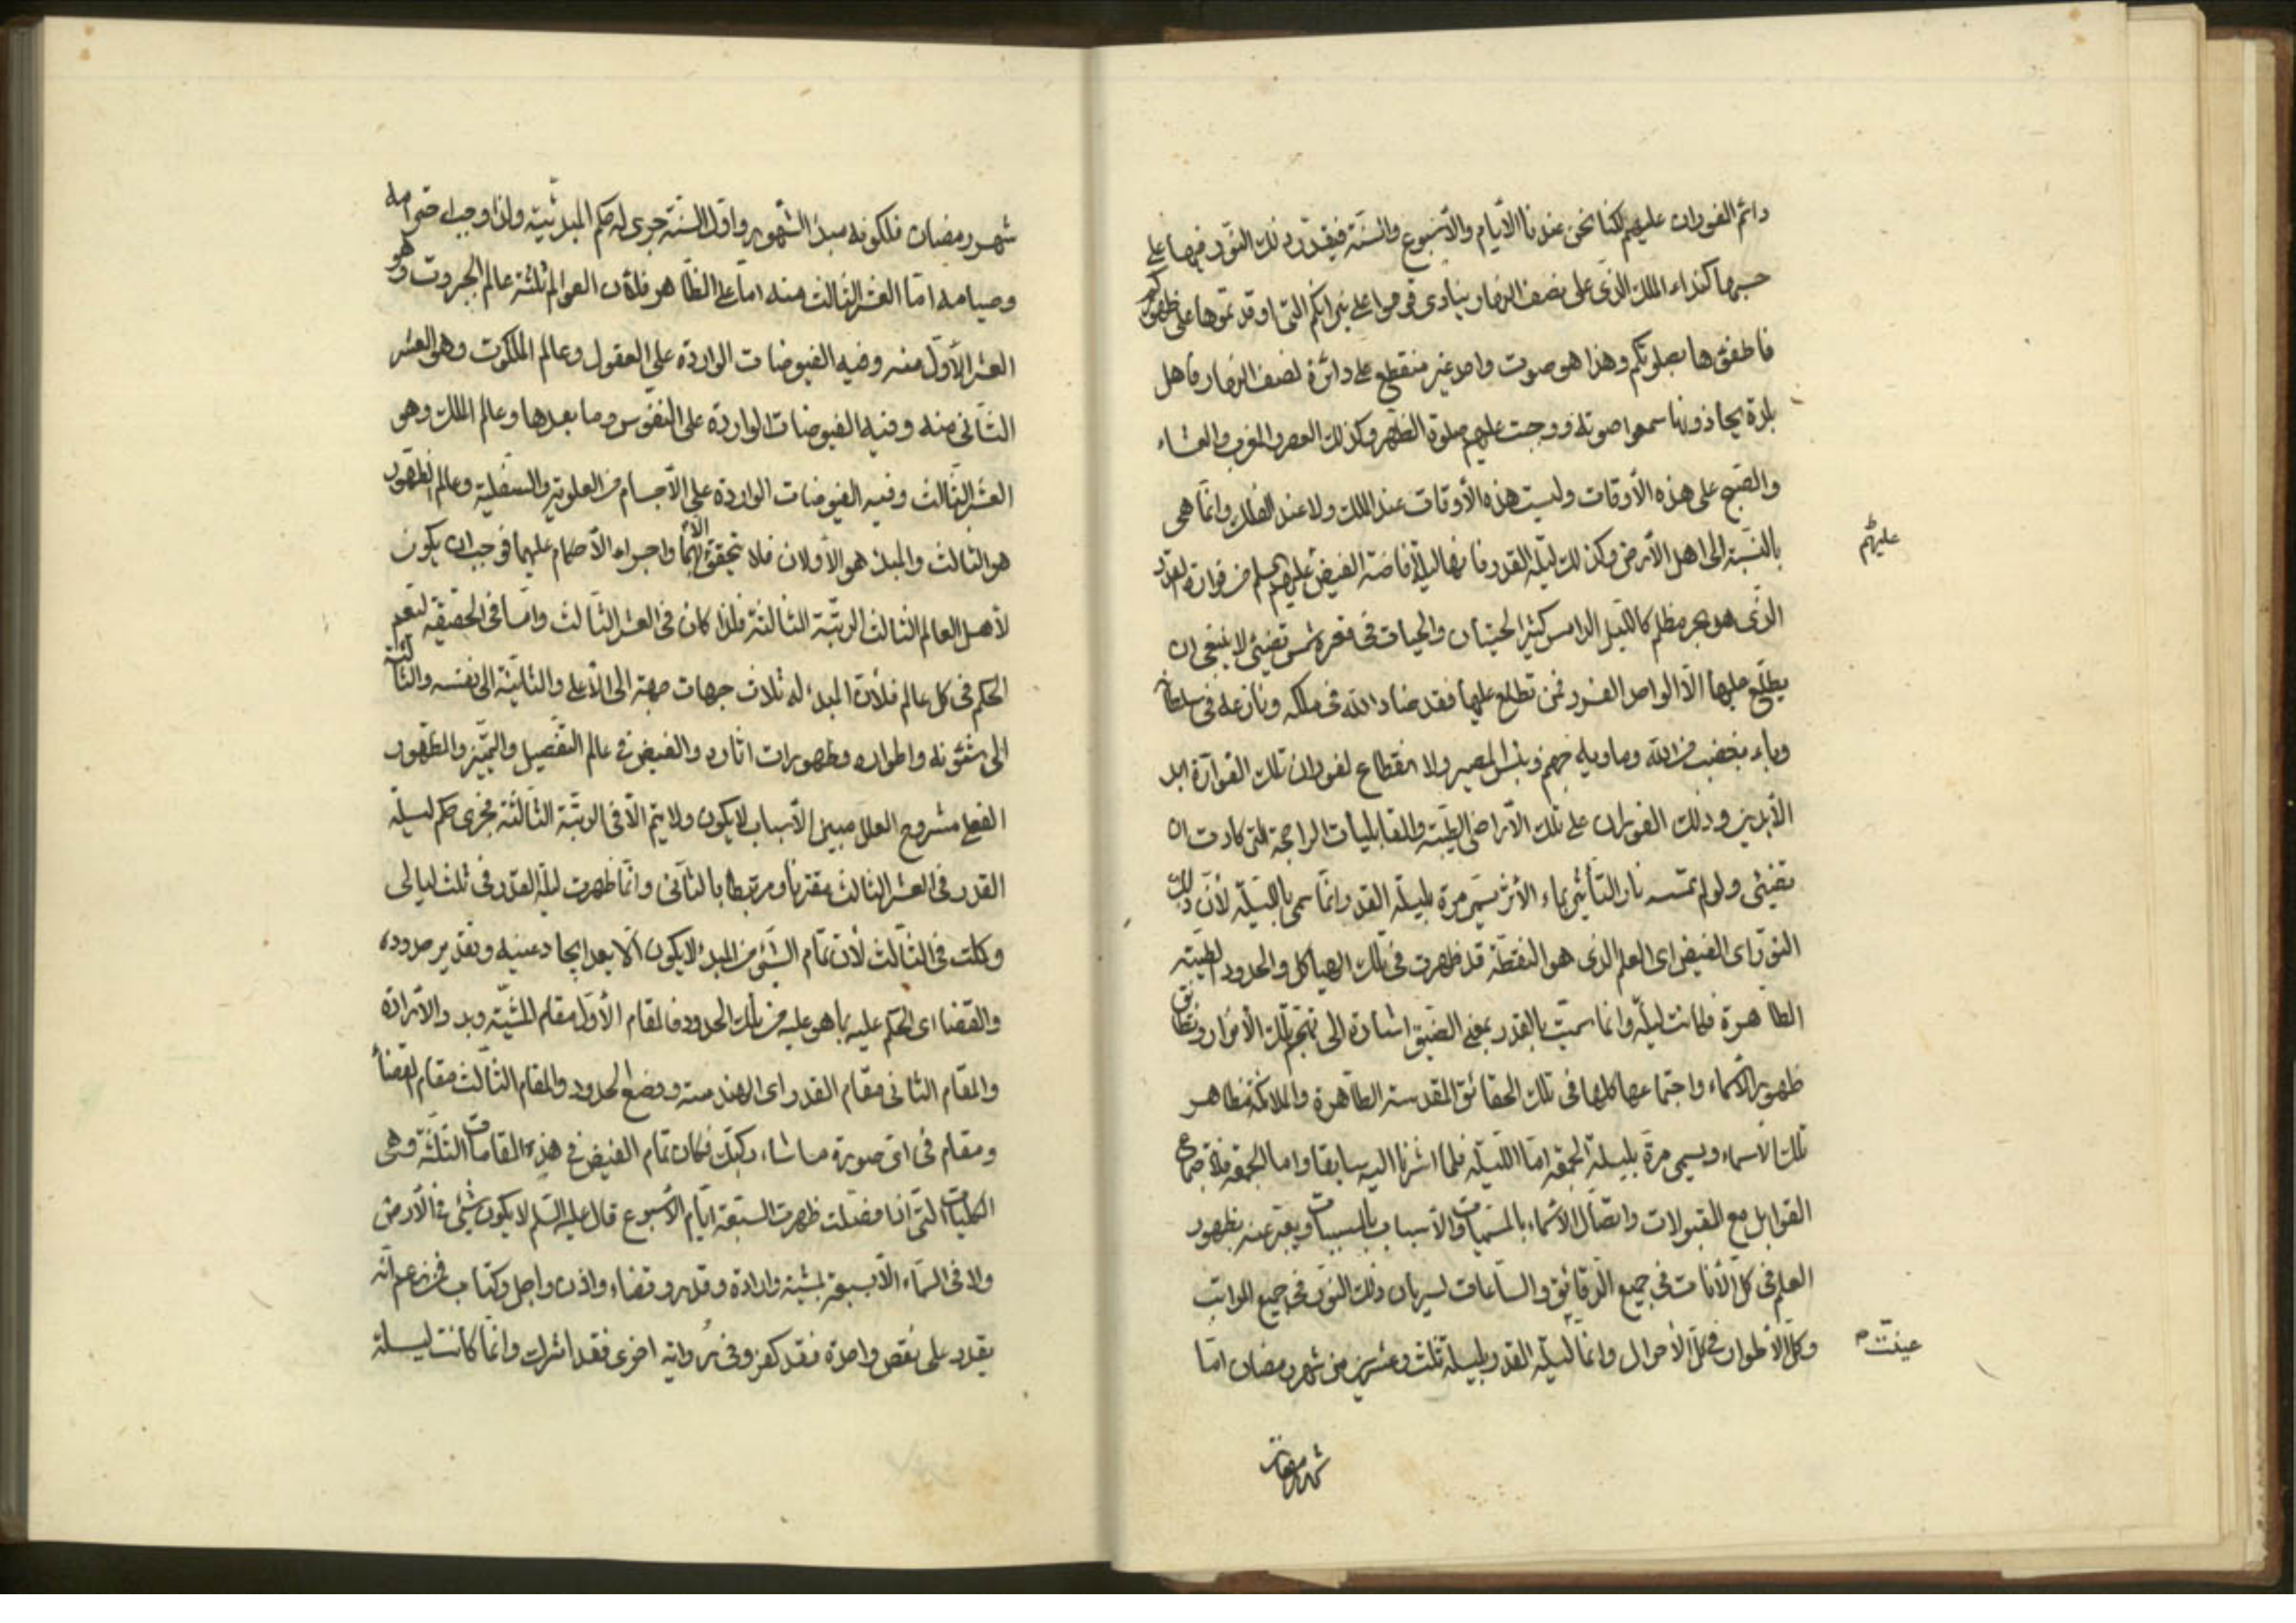 دائم الفوران عليهم لكنا نحن عندنا الأيام والأسبوع والسنة فيقدر ذلك النور فيها على
حسبها كنداء الملك الذي على نصف النهار ينادي قوموا على نيرانكم التي اوقدتموها على ظهوركم
فاطفئوها بصلوتكم وهذا هو صوت واحد غير منقطع على دائرة نصف النهار فاهل
بلدة يحاذونها سمعوا صوته ووجبت عليهم صلوة الظهر وكذلك العصر والمغرب والعشاء
والصبح على هذه الأوقات وليست هذه الأوقات عند الملك ولا عند الفلك وانما هي
بالنسبة الى اهل الأرض وكذلك ليلة القدر فانها ليلة افاضة الفيض عليهم من فوارة القدر
عليهم
الذي هو بحر مظلم كالليل الدامس كثير الحيتان والحيات في قعره شمس تضيئ لا ينبغي ان
يطلع عليها الا الواحد الفرد فمن تطلع عليها فقد ضاد الله في ملكه ونازعه في سلطانه
وباء بغضب من الله وماويه جهنم وبئس المصير ولا انقطاع لفوران تلك الفوارة ابد
الأبدين وذلك الفوران على تلك الأراضي الطيبة والقابليات الراجحة التي كادت ان
تضيئ ولو لم تمسسه نار التأثير بماء الأثر يسمى مرة بليلة القدر وانما سمى بالليلة لأن ذلك
النور اى الفيض اى العلم الذي هو النقطة قد ظهرت في تلك الهياكل والحدود الطيبة
الطاهرة فكانت ليلة وانما سميت بالقدر بمعنى الضيق اشارة الى تهجم تلك الأنوار وتضايق
ظهور الأسماء واجتماعها كلها في تلك الحقائق المقدسة الطاهرة والملائكة مظاهر
تلك الأسماء ويسمى مرة بليلة الجمعة اما الليلة فلما اشرنا اليه سابقا واما الجمعة فلاجتماع
القوابل مع المقبولات واتصال الأسماء بالمسميات والأسباب بالمسببات ويعبر عنه بظهور
العلم في كل الأنات في جميع الدقايق والساعات لسريان ذلك النور في جميع المراتب
وكل الأطوار في كل الأحوال وانما ليلة القدر بليلة ثلث وعشرين من شهر رمضان اما
عينت
شهر رمضان
شهر رمضان فلكونه مبدء الشهور واول السنة جرى له حكم المبدئية ولذا وجب احترامه
وصيامه اما العشر الثالث منه اما على الظاهر فلأن العوالم ثلثة عالم الجبروت وهو
العشر الأول منه وفيه الفيوضات الواردة على العقول وعالم الملكوت وهو العشر
الثاني منه وفيه الفيوضات الواردة على النفوس وما بعدها وعالم الملك وهو
العشر الثالث وفيه الفيوضات الواردة على الأجسام من العلوية والسفلية وعالم الظهور
هو الثالث والمبدء هو الأولان فلا يتحقق واجراء الأحكام عليهما فوجب ان يكون
لأهل العالم الثالث الرتبة الثالثة فلذا كان في العشر الثالث واما في الحقيقة ليعم
الحكم في كل عالم فلأن المبدء له ثلاث جهات جهة الى الأعلى والثانية الى نفسه والثالثة
الى شئونه واطواره وظهورات اثاره والفيض في عالم التفصيل والتميز والظهور
مشروح العلل مبين الأسباب لا يكون ولا يتم الا في الرتبة الثالثة فجرى حكم ليلة
القدر في العشر الثالث مقترنا ومرتبطا بالثاني وانما ظهرت ليلة القدر في ثلث ليالي
وكملت في الثالث لأن تمام الشيئ من المبدء لا يكون الا بعد ايجاد عينه وتقدير حدوده
والقضا اى الحكم عليه بما هو عليه من تلك الحدود فالمقام الأول مقام المشية وبدو الأرادة
والمقام الثاني مقام القدر اى الهندسة ووضع الحدود والمقام الثالث مقام القضأ
ومقام في اى صورة ما شاء ركبك فكان تمام الفيض في هذه المقامات الثلثة وهى
الكليات التي اذا فصلت ظهرت السبعة ايام الأسبوع قال عليه السلم لا يكون شيئ في الأرض
ولا في السماء الا بسبعة بمشية وارادة وقدر وقضاء واذن واجل وكتاب فمن زعم انه
يقدر على نقص واحدة فقد كفر وفي رواية اخرى فقد اشرك وانما كانت ليلة